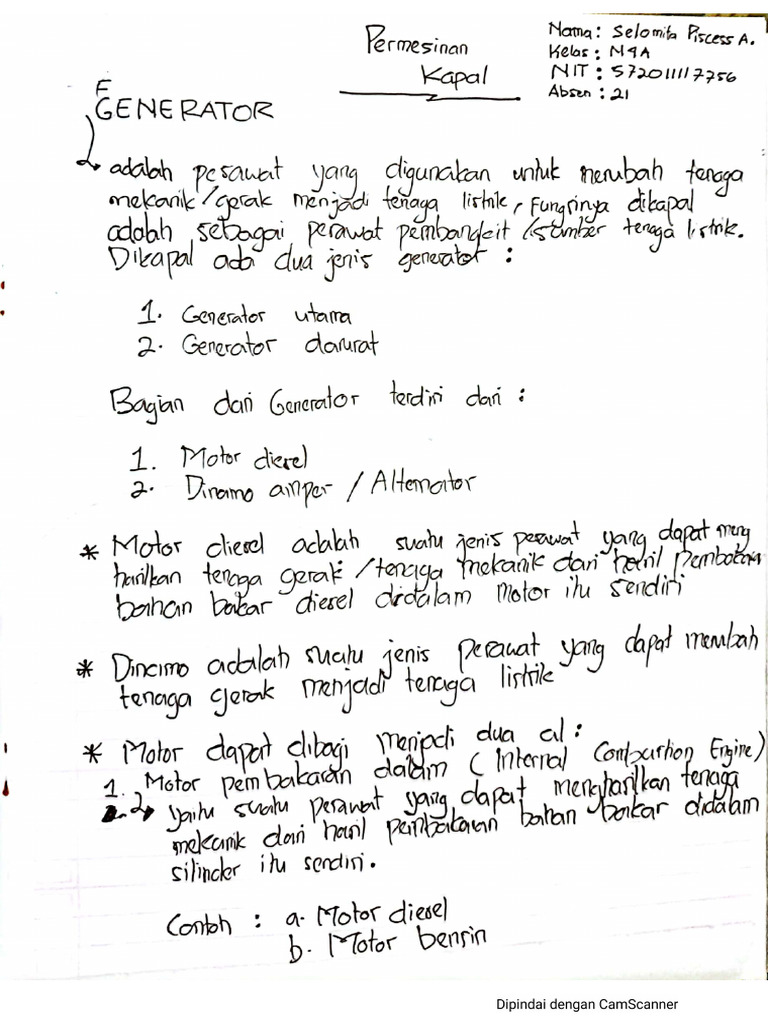 Permesinan
Kapal
Nama : Selomita Piscess A.
Kelas : N4A
NIT : 572011117756
Absen : 21
F
GENERATOR
adalah pesawat yang digunakan untuk merubah tenaga
mekanik/gerak menjadi tenaga listrik, Fungsinya dikapal
adalah sebagai pesawat pembangkit /sumber tenaga listrik.
Dikapal ada dua jenis generator :
1. Generator utama
2. Generator darurat
Bagian dari Generator terdiri dari :
1. Motor diesel
2. Dinamo amper / Alternator
* Motor diesel adalah suatu jenis pesawat yang dapat meng
hasilkan tenaga gerak /tenaga mekanik dari hasil Pembakaran
bahan bakar diesel didalam Motor itu sendiri
* Dinamo adalah suatu jenis pesawat yang dapat merubah
tenaga gerak menjadi tenaga listrik
* Motor dapat dibagi menjadi dua al :
1. Motor pembakaran dalam (Internal Combustion Engine)
yaitu suatu pesawat yang dapat menghasilkan tenaga
mekanik dari hasil pembakaran bahan bakar didalam
silinder itu sendiri.
Contoh : a. Motor diesel
b. Motor bensin
Dipindai dengan CamScanner